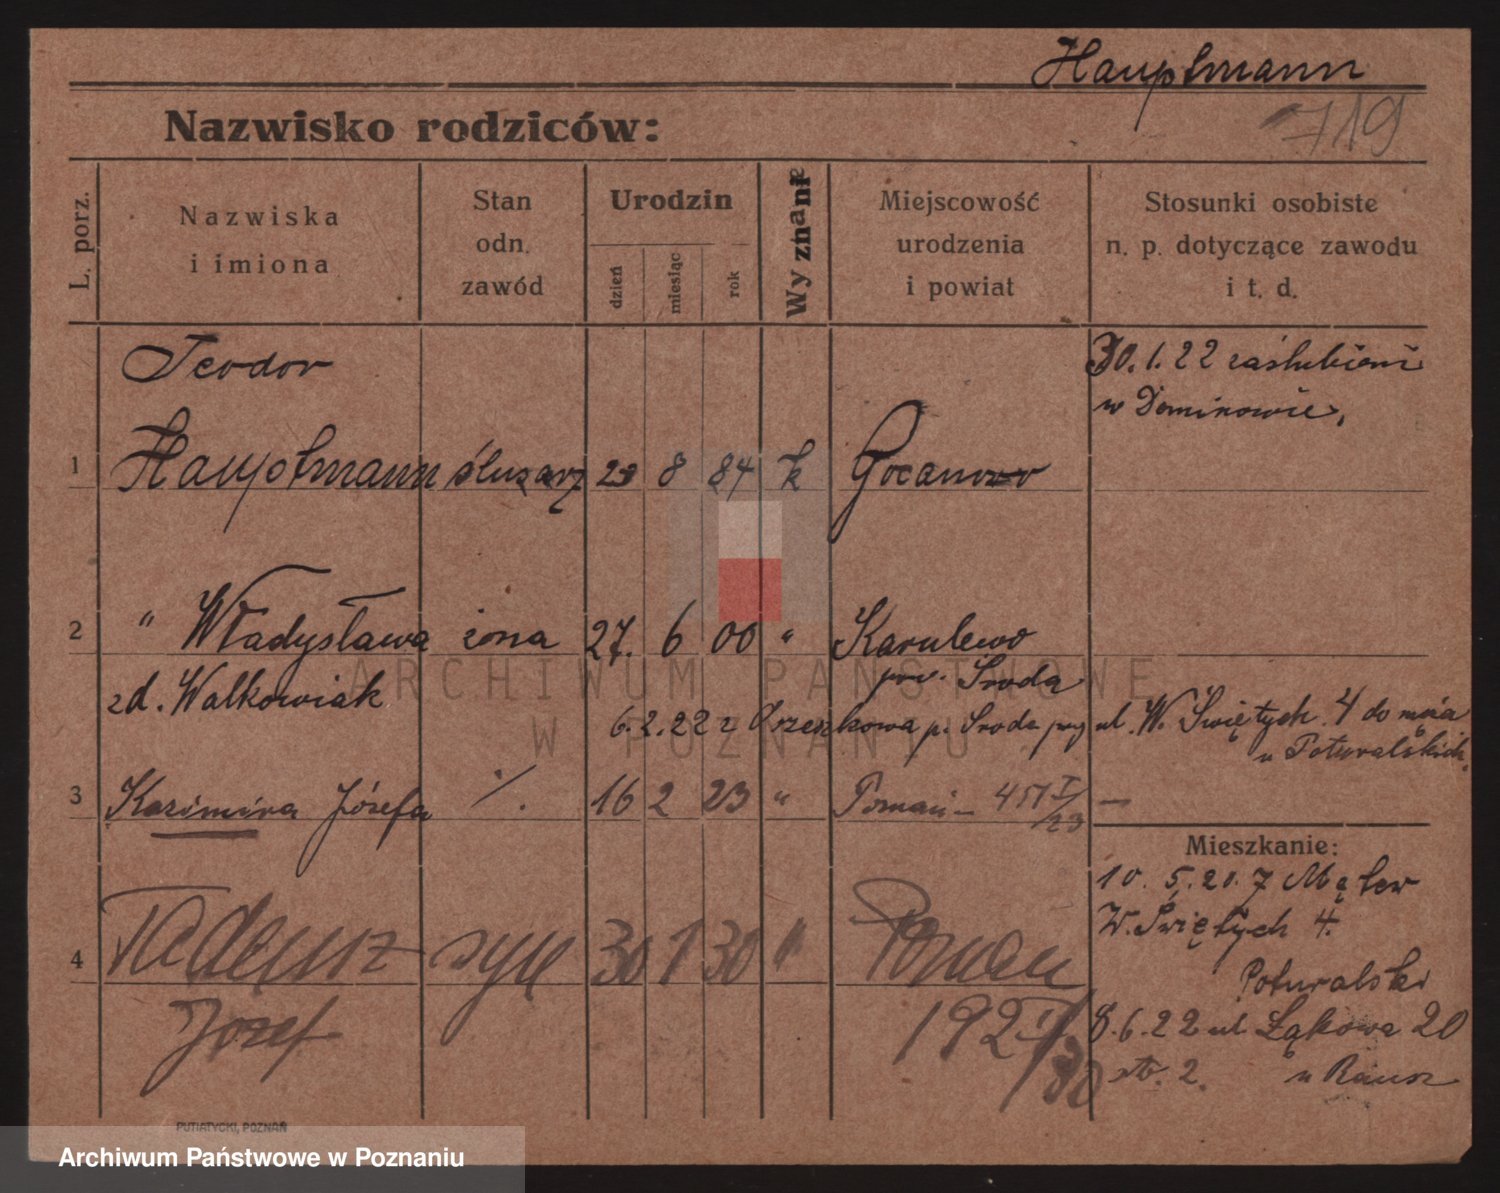 Hauptmann
719
Nazwisko rodziców:
L. porz.
Nazwiska
i imiona
Stan
odn.
zawód
Urodzin
dzień
miesiąc
rok
Wyznanie
Miejscowość
urodzenia
i powiat
Stosunki osobiste
n. p. dotyczące zawodu
i t. d.
Teodor
30. 1. 22 zaślubieni
w Dominowie,
1 Hauptmann ślusarz 23 8 84 k Gocanowo
2 " Władysława żona 27. 6 00 " Karulewo
pow. Środa
zd. Walkowiak
6. 2. 22 z Orzeszkowa p. Środa ul. W. Świętych 4 do męża
u Poturalskich.
3 Kazimira Józefa ./. 16 2 23 " Poznań - 451 I/23 —
Mieszkanie:
10. 5. 20. z Mątew
W. Świętych 4.
Poturalski
4 Tadeusz syn 30 1 30 " Poznań
Józef
192 I/30
8. 6. 22 ul. Łąkowa 20
u Rausz
PUTIATYCKI, POZNAŃ
ARCHIWUM PAŃSTWOWE
W POZNANIU
Archiwum Państwowe w Poznaniu